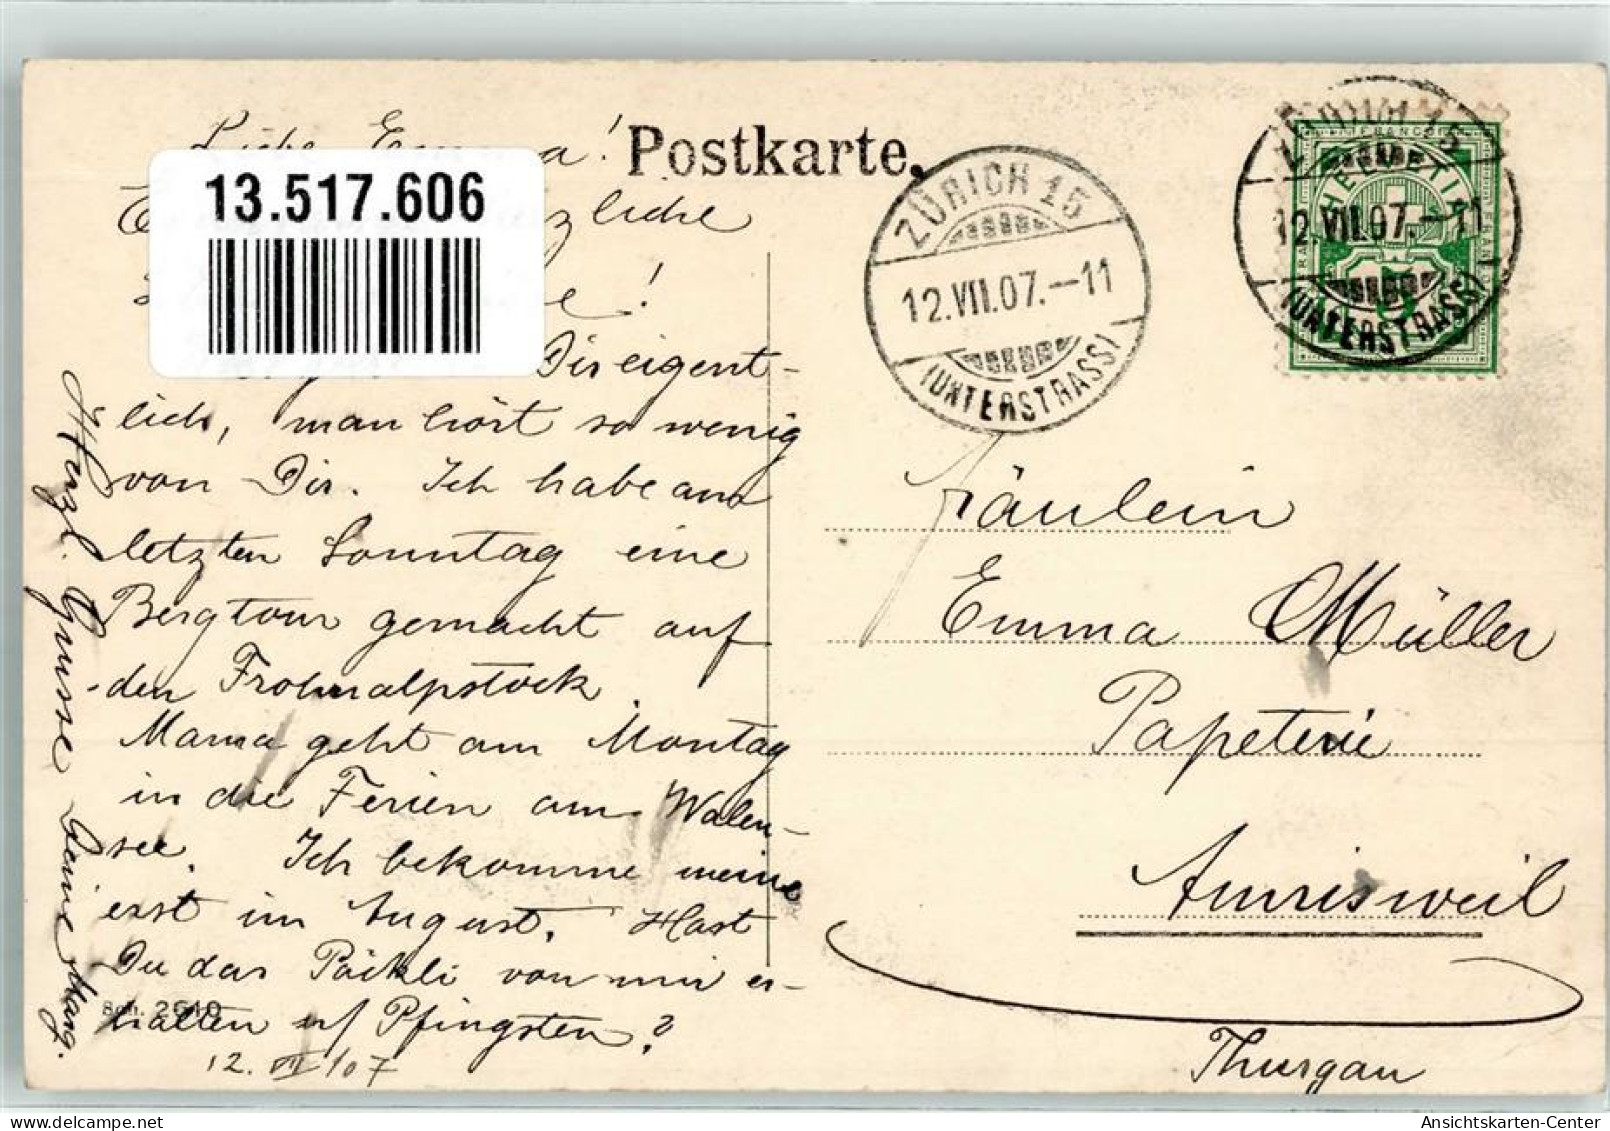 Liebe Emma!
Postkarte.
13.517.606
zliche
e!
Dir eigent-
lich, man hört so wenig
von Dir. Ich habe am
letzten Sonntag eine
Bergtour gemacht auf
den Frohnalpstock.
Mama geht am Montag
in die Ferien am Walen-
see. Ich bekomme meine
erst im August. Hast
Du das Päckli von mir er-
halten uf Pfingsten?
12. VII 107
Herzl. Grüsse Deine Marg.
Sch. 2640
ZÜRICH 15
12.VII.07.-11
(UNTERSTRASS)
ZÜRICH 15
12.VII.07.-11
(UNTERSTRASS)
FRANCO
HELVETIA
5
Fräulein
Emma Müller
Papeterie
Amrisweil
Thurgau
Ansichtskarten-Center